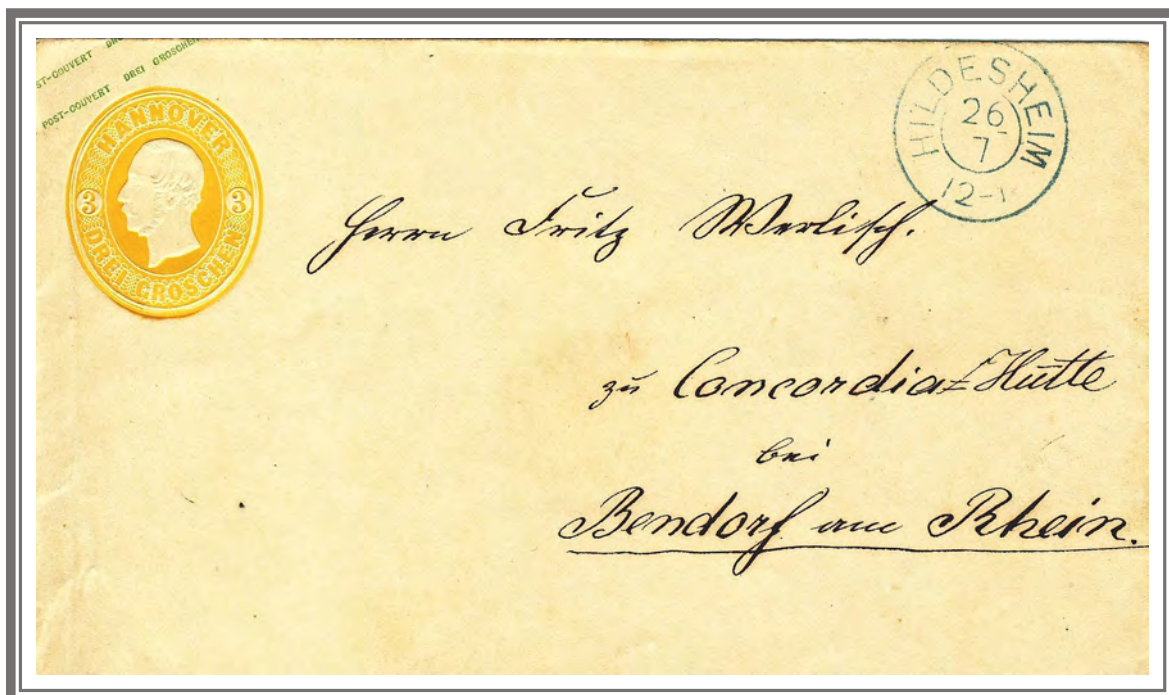 ST-COUVERT DRE
POST-COUVERT DREI GROSCHEN
HANNOVER
3 3
DREI GROSCHEN
HILDESHEIM
26
7
12-1
Herrn Fritz
zu Concordia=Hütte
bei
Bendorf am Rhein.